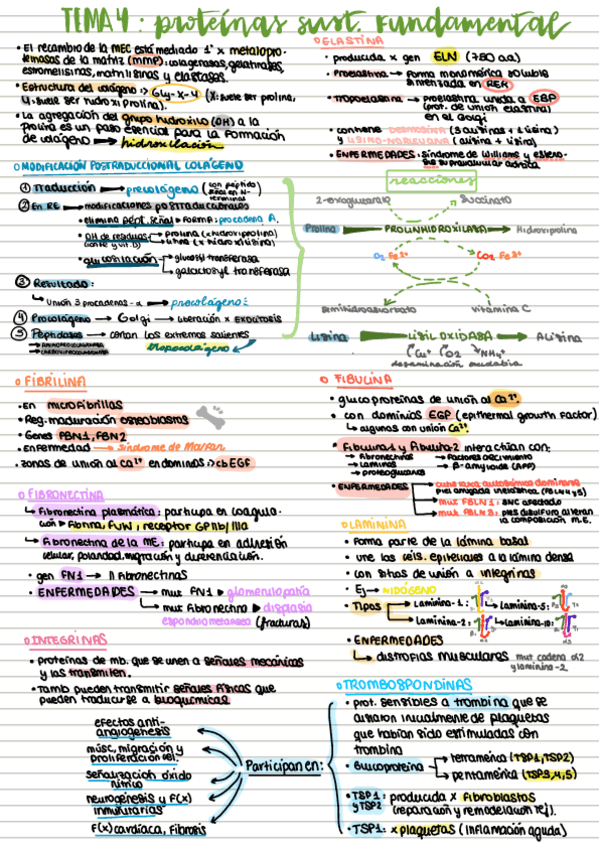 TEMA 4 : proteínas sust. Fundamental
• El recambio de la MEC está mediado 1º x metalopro-
teinasas de la matriz (MMP): colagenasas, gelatinasas,
estromelisinas, matrilisinas y elastasas.
• Estructura del colágeno :→ Gly-X-Y (X: suele ser prolina,
Y: suele ser hidroxiprolina).
• La agregación del grupo hidroxilo (OH) a la
Prolina es un paso esencial para la formación
de colágeno → hidroxilación
○ MODIFICACIÓN POSTRADUCCIONAL COLÁGENO
① Traducción → precolágeno (con péptido
señal en N-
terminal)
② En RE → modificaciones postraduccionales
• elimina pept. señal → Forma: procadena α.
• OH de residuos → prolina (x hidroxiprolina)
(con Fe y vit. D) → lisina (x hidroxilisina)
• glicosilación → glucosil transferasa
→ galactosyl transferasa
③ Resultado:
↳ Unión 3 procadenas-α → procolágeno
④ Procolágeno → Golgi → liberación x exocitosis
⑤ Peptidasas → cortan los extremos salientes
tropocolágeno
○ ELASTINA
• producida x gen ELN (750 aa)
• Proelastina → forma monomérica soluble
sintetizada en RER
• Tropoelastina → proelastina unida a EBP
(prot. de unión elastina)
en el Golgi
• contiene DESMOSINA (3 alisinas + lisina)
y LISINO-NORLEUCINA (alisina + lisina)
• ENFERMEDADES: síndrome de Williams y esteno-
sis supravalvular aórtica
reacciones
2-oxoglutarato Succinato
Prolina PROLINHIDROXILASA Hidroxiprolina
O₂ Fe²⁺ CO₂ Fe³⁺
Semihidroascorbato vitamina C
Lisina LISIL OXIDASA ALisina
Cu⁺ O₂ NH₄⁺
desaminación oxidativa
○ FIBRILINA
• En microfibrillas
• Reg. maduración osteoblastos
• Genes FBN1, FBN2
• Enfermedad → síndrome de Marfan
• zonas de unión al Ca²⁺ en dominios → cbEGF
○ FIBRONECTINA
↳ Fibronectina plasmática: participa en coagula-
ción → Fibrina, FUN, receptor GPIIb/IIIa
↳ Fibronectina de la ME: participa en adhesión
celular, polaridad, migración y diferenciación.
• gen FN1 → 11 Fibronectinas
• ENFERMEDADES → mut FN1 → glomerulopatía
→ mut Fibronectina → displasia
espondilometafisaria (fracturas)
○ INTEGRINAS
• proteínas de mb. que se unen a señales mecánicas
y las transmiten.
• Tamb pueden transmitir señales físicas que
pueden traducirse a bioquímicas
○ FIBULINA
• glucoproteínas de unión al Ca²⁺.
• con dominios EGP (epithermal growth factor)
↳ algunos con unión Ca²⁺.
• Fibulina 1 y Fibulina 2 interactúan con:
→ Fibronectinas → factores crecimiento
→ Laminas → β-amyloide (APP)
→ proteoglucanos
• ENFERMEDADES → cutis laxa autosómica dominante
piel arrugada inelástica (FBLN4 y 5)
→ mut FBLN1: SNC afectado
→ mut FBLN3: ptes disulfuro alteran
la composición M.E.
○ LAMININA
• forma parte de la lámina basal
• une las céls. epiteliales a la lámina densa
• con sitios de unión a integrinas
• Ej → NIDÓGENO
• Tipos → Laminina-1: → Laminina-5:
→ Laminina-2: → Laminina-10:
• ENFERMEDADES
↳ distrofias musculares mut cadena α2
y laminina-2
○ TROMBOSPONDINAS
• prot. sensibles a trombina que se
aislaron inicialmente de plaquetas
que habían sido estimuladas con
trombina
• Glucoproteína → tetramérica (TSP1, TSP2)
→ pentamérica (TSP3,4,5)
• TSP1: producida x fibroblastos
y TSP2 (reparación y remodelación tej).
• TSP1: x plaquetas (inflamación aguda)
Participan en:
efectos anti-
angiogénesis
músc, migración y
proliferación cel.
señalización óxido
nítrico
neurogénesis y F(x)
inmunitarias
F(x) cardíaca, Fibrosis